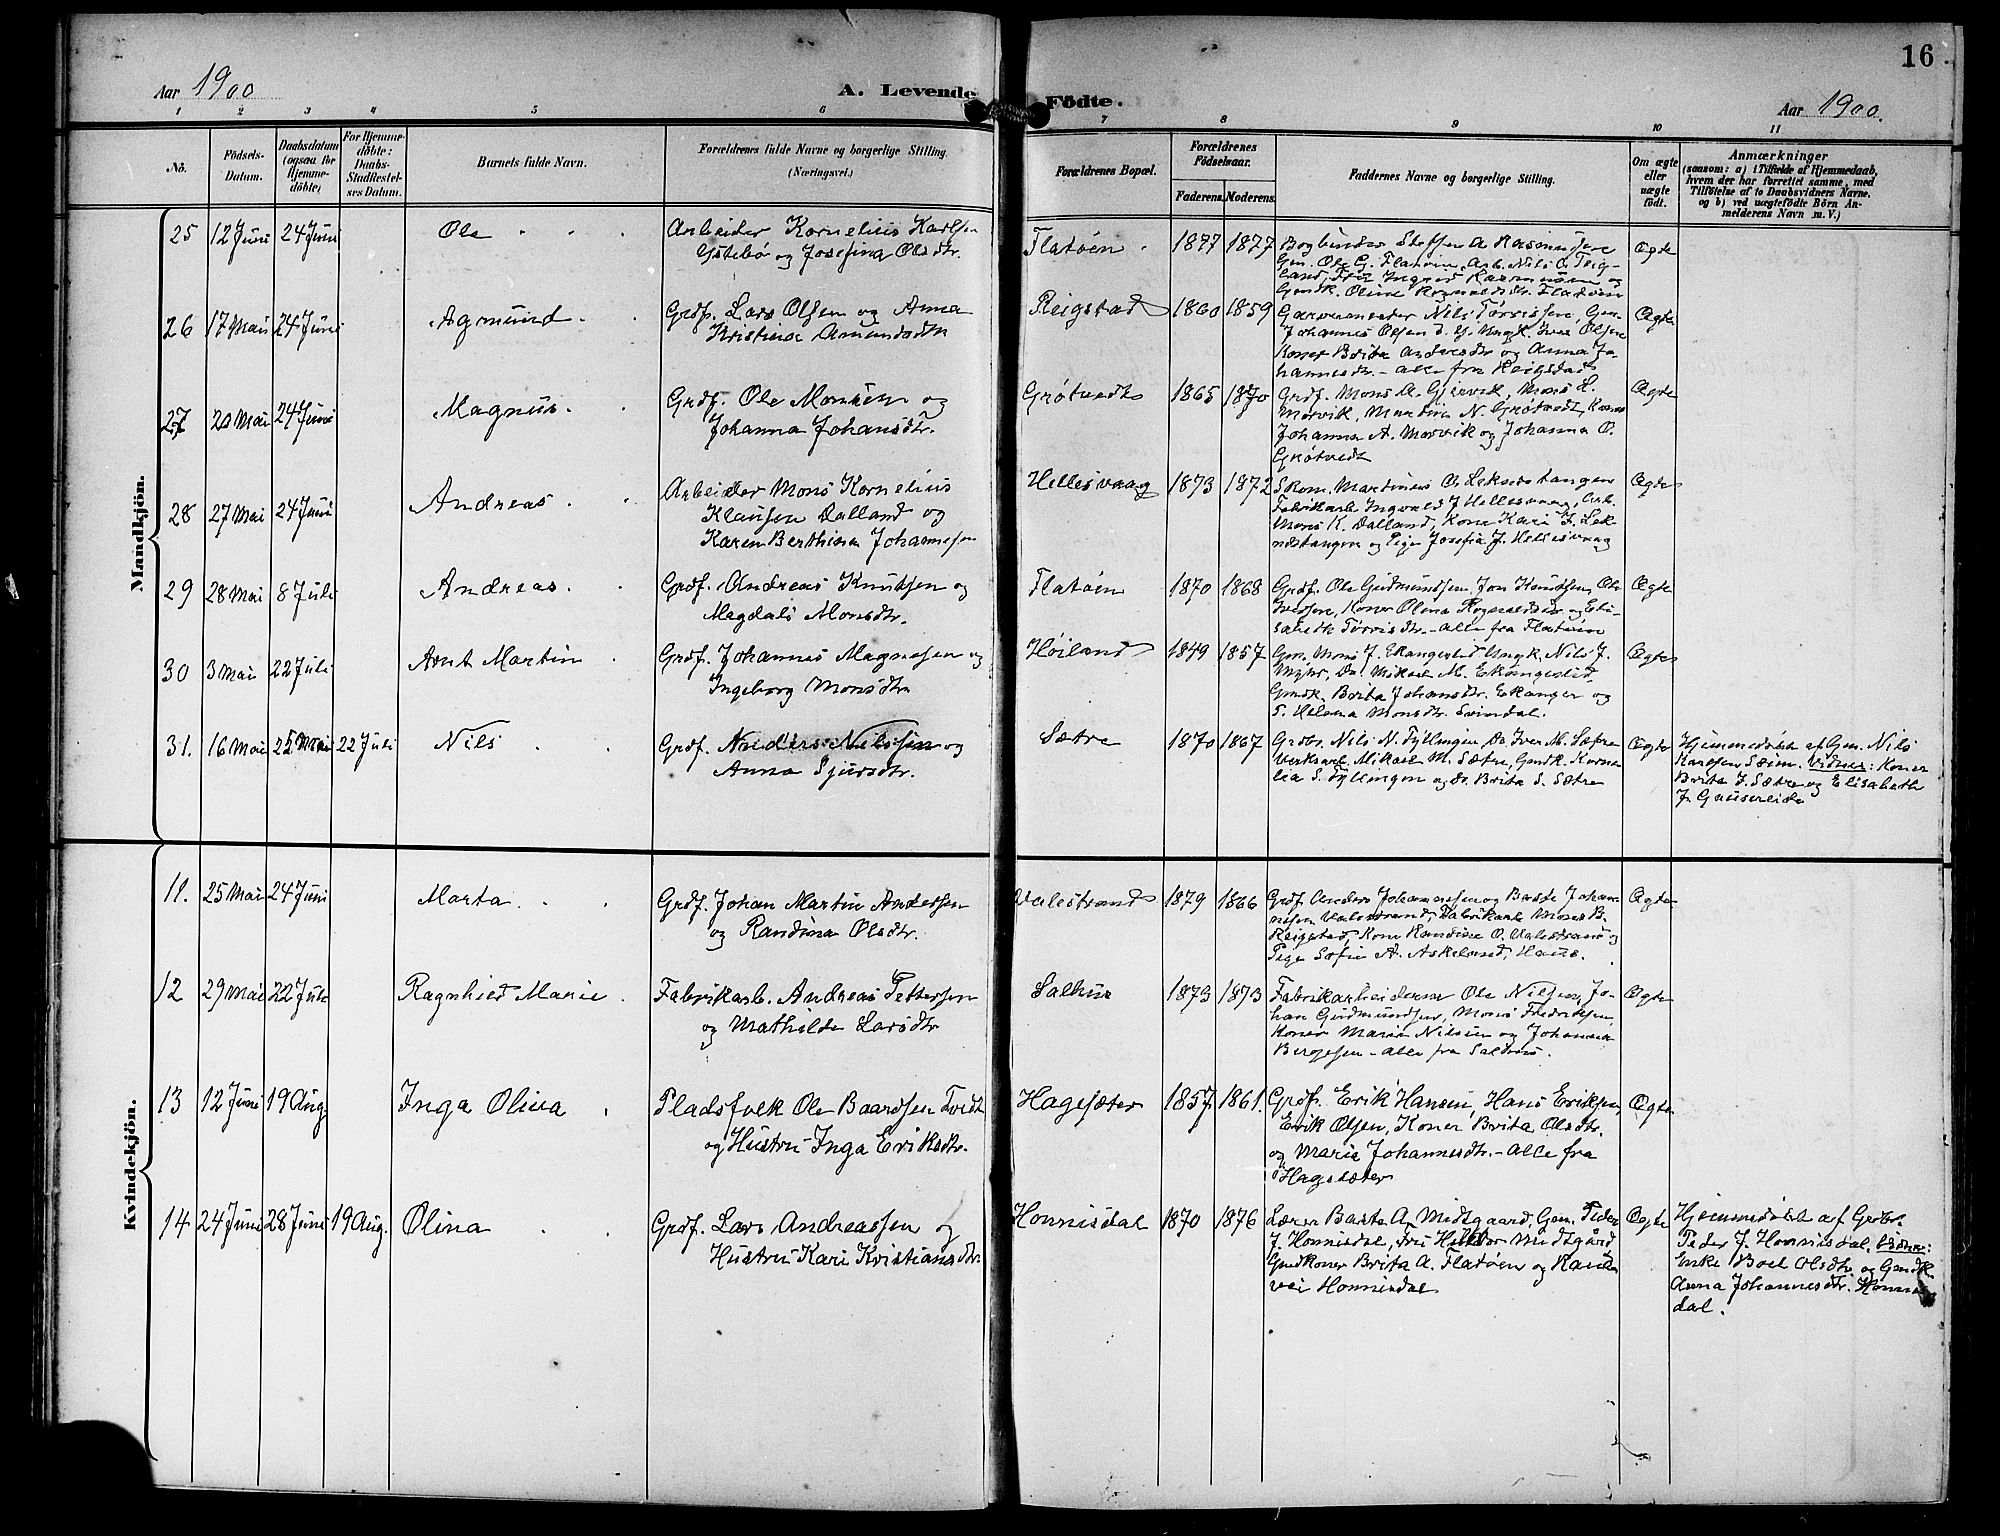 16
Aar 1900
A. Levende Födte.
Aar 1900.
1 2 3 4 5 6 7 8 9 10 11
No.
Födsels-
Datum.
Daabsdatum
(ogsaa for
Hjemme-
döbte)
For Hjemme-
döbte:
Daabs-
Stadfæstel-
ses Datum.
Barnets fulde Navn.
Forældrenes fulde Navne og borgerlige Stilling.
(Næringsvei.)
Forældrenes Bopæl.
Forældrenes
Födselsaar.
Faderens. Moderens.
Faddernes Navne og borgerlige Stilling.
Om ægte
eller
uægte
födt.
Anmærkninger
(saasom: a) i Tilfælde af Hjemmedaab,
hvem der har forrettet samme, med
Tilföielse af to Daabsvidners Navne.
og b) ved uægtefödte Börn An-
melderens Navn m. V.)
Mandkjön.
25 12 Juni 24 Juni Ole
Arbeider Kornelius Karlsen
Gstebø og Josefina Olsdtr.
Flatøen 1877 1877
Bogbinder Steffen A. Rasmussen
Gm. Ole G. Flatøen, Arb. Nils O. Teig-
land, Fru Ingrid Rasmussen og
Gmdk. Oline Ragnvaldsdtr. Flatøen
Ægte
26 17 Mai 24 Juni Agmund
Grdf. Lars Olsen og Anna
Kristina Amundsdtr
Reigstad 1860 1859
Garvermester Nils Torrissen, Gm.
Johannes Olsen d. y. Ungk. Iver Olsen
Koner Brita Andersdtr og Anna Jo-
hannesdtr. - alle fra Reigstad
Ægte
27 20 Mai 24 Juni Magnus.
Grdf. Ole Monsen og
Johanna Johansdtr.
Grøtvedt 1865 1870
Grdf. Mons A. Gjervik, Mons L.
Morvik, Martin N. Grøtvedt, Koner
Johanna A. Morvik og Johanna O.
Grøtvedt
Ægte
28 27 Mai 24 Juni Andreas
Arbeider Mons Kornelius
Klausen Dalland og
Karen Berthina Johannesen
Hellesvaag 1873 1872
Skom. Martinus O. Leknestangen
Fabrikarb. Ingvald J. Hellesvaag, Arb.
Mons K. Dalland, Kone Kari J. Lek-
nestangen og Pige Josefia J. Hellesvaag
Ægte
29 28 Mai 8 Juli Andreas.
Grdf. Andreas Knutsen og
Magdali Monsdtr.
Flatøen 1870 1868
Grdf. Ole Gudmundsen, Jon Knudsen, Ole
Iversen, Koner Olina Ragnvaldsdtr. og Eli-
sabeth Torrisdtr. - alle fra Flatøen
Ægte
30 3 Mai 22 Juli Arnt Martin
Grdf. Johannes Magnesen og
Ingeborg Monsdtr
Høiland 1849 1857
Gm. Mons J. Ekangerlid Ungk. Nils J.
Myhr, Do. Mikael M. Ekangerlid,
Gmdk. Brita Johansdtr. Ekanger og
P. Helena Monsdtr. Svindal.
Ægte
31. 16 Mai 25 Mai 22 Juli Nils
Grdf. Anders Nilssen og
Anna Sjursdtr.
Sætre 1870 1867
Grdbr. Nils N. Fyllingen, Do. Iver M. Sætre
Verksarb. Mikael M. Sætre, Gmdk. Korne-
lia S. Fyllingen og Do. Brita S. Sætre
Ægte
Hjemmedøbt af Gm. Nils
Karlsen Sæim. Vidner: Koner
Brita J. Sætre og Elisabeth
J. Gaustreide
Kvindekjön.
11. 25 Mai 24 Juni Marta
Grdf. Johan Martin Andersen
og Randina Olsdtr.
Valestrand 1879 1866
Grdf. Anders Johannesen og Baste Johan-
nesen Valestrand, Fabrikarb. Mons B.
Reigstad, Kone Randine O. Valestrand og
Pige Sofie A. Askeland, Haus.
Ægte
12 29 Mai 22 Juli Ragnhild Marie
Fabrikarb. Andreas Pettersen
og Mathilde Larsdtr
Salhus 1873 1873
Fabrikarbeiderne Ole Nilsen, Jo-
han Gudmundsen, Mons Fredriksen,
Koner Marie Nilsen og Johanna
Bergesen - alle fra Salhus.
Ægte
13 12 Juni 19 Aug. Inga Olina
Pladsfolk Ole Baardsen Tvedt
og Hustru Inga Eriksdtr.
Hagesæter 1857. 1861.
Grdf. Erik Hansen, Hans Eriksen,
Erik Olsen, Koner Brita Olsdtr.
og Maria Johannesdtr. - alle fra
Hagesæter
Ægte
14 24 Juni 28 Juni 19 Aug. Olina
Grdf. Lars Andreassen og
Hustru Kari Kristiansdtr.
Honnisdal 1870 1876
Lærer Baste A. Midtgaard, Gm. Peder
J. Honnisdal, Fru Halldor Midtgård
Gmdkoner Brita A. Flatøen og Rand-
vei Honnisdal
Ægte
Hjemmedøbt af Grbr.
Peder J. Honnisdal. Vidner:
Enke Boel Olsdtr og Gmdk.
Anna Johannesdtr. Honnis-
dal.